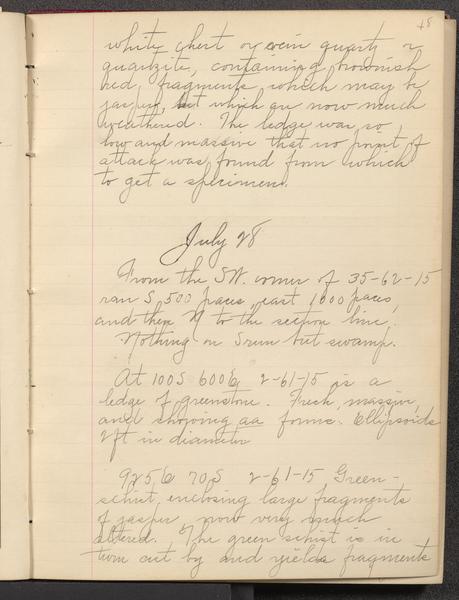 48
white chert or vein quartz or
quartzite, containing brownish
red, fragments which may be
jasper, but which are now much
weathered. The ledge was so
low and massive that no point of
attack was found from which
to get a specimen.
July 28
From the SW. corner of 35-62-15
ran S, 500 paces, east 1000 paces,
and then N to the section line.
Nothing on S run but swamp.
At 100 S 600 E 2-61-15 is a
ledge of greenstone. Fresh, massive,
and showing aa forms. Ellipsoids
2 ft in diameter
925 E 70 S 2-61-15 Green-
schist, enclosing large fragments
of jasper now very much
altered. The green schist is in
turn cut by and yields fragments